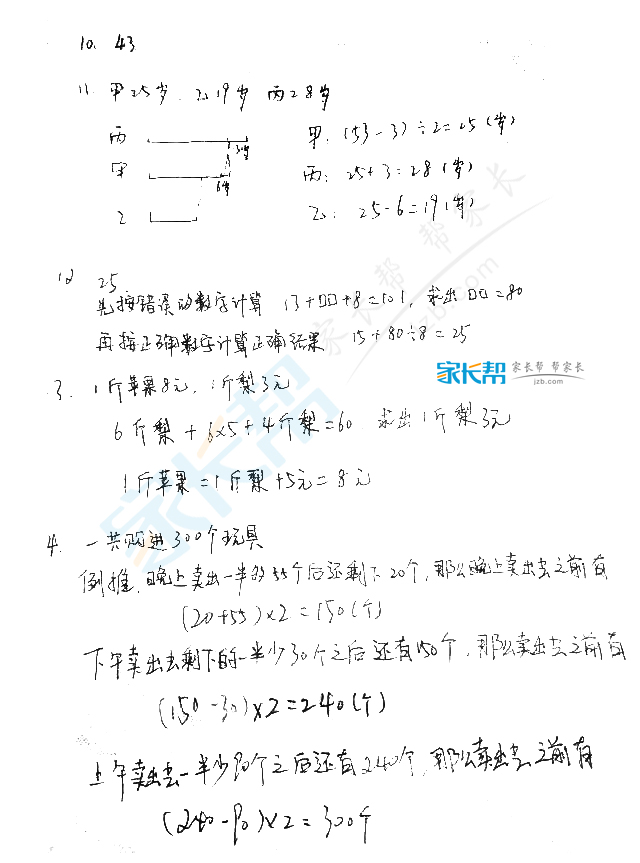 10. 43
11. 甲25岁. 乙19岁 丙28岁
丙 3岁 甲: (53-3)÷2=25(岁)
甲 6岁 丙: 25+3=28(岁)
乙 乙: 25-6=19(岁)
12 25
先按错误的数字计算 13+口口+8=101, 求出口口=80
再按正确数字计算正确结果 15+80÷8=25
家长帮 家长帮 帮家长
jzb.com
3. 1斤苹果8元, 1斤梨3元
6斤梨+6×5+4斤梨=60 求出1斤梨3元
1斤苹果=1斤梨+5元=8元
4. 一共购进300个玩具
倒推, 晚上卖出一半多55个后还剩下20个, 那么晚上卖出去之前有
(20+55)×2=150(个)
下午卖出去剩下的一半少30个之后还有150个, 那么卖出去之前有
(150-30)×2=240(个)
上午卖出去一半少90个之后还有240个, 那么卖出去之前有
(240-90)×2=300个
家长帮
家长帮 帮家长
jzb.com